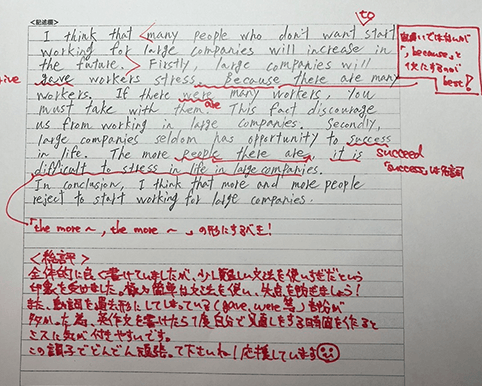 <記述編>
to
I think that <many people who don't want start
working for large companies will increase in
the future.> Firstly, large companies will
gave workers stress. Because there are many
workers. If there were many workers, you
are
must take with them. This fact discourage
us from working in large companies. Secondly,
large companies seldom has opportunity to success
succeed
in life. The more people there are, it is
"success"は名詞
difficult to stress in life in large companies.
In conclusion, I think that more and more people
reject to start working for large companies.
間違いではないが
「, because」と
使にするのが
best!
「the more ~ , the more ~ 」の形にするべき!
<総評>
全体的に良く書けていましたが、少し難しい文法を使いすぎだという
印象を受けました。極力簡単な文法を使い、失点を防ぎましょう!
また、動詞を過去形にしてしまっている(gave, were 等)部分が
多かった為、英作文を書けたら1度自分で見直しをする時間を作ると
ミスに気が付きやすいです。
この調子でどんどん頑張って下さいね!応援しています